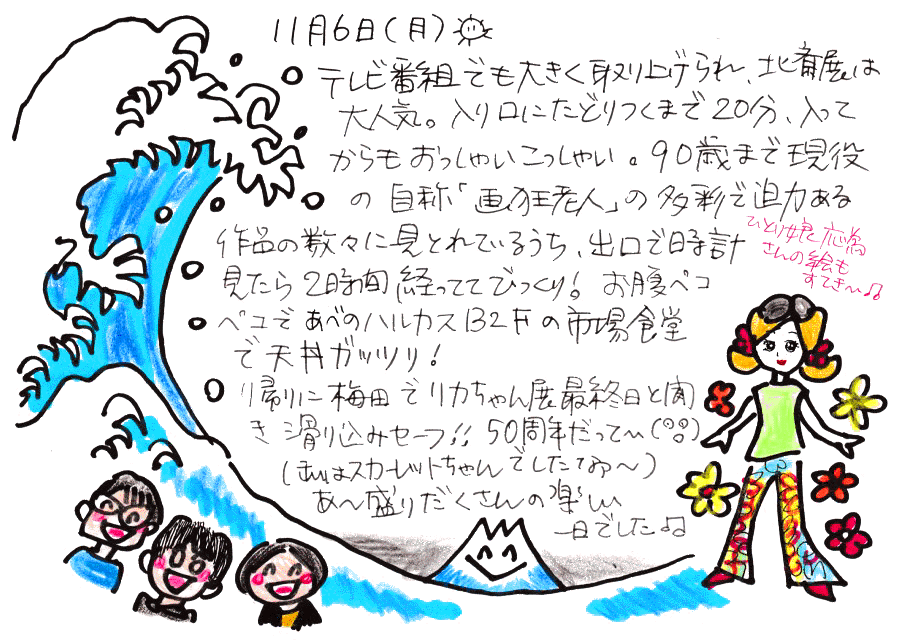 11月6日(月)
テレビ番組でも大きく取り上げられ、北斎展は
大人気。入り口にたどりつくまで20分、入って
からもおっしゃいこっしゃい。90歳まで現役
の自称「画狂老人」の多彩で迫力ある
作品の数々に見とれているうち、出口で時計
見たら2時間経っててびっくり! お腹ペコ
ペコであべのハルカスB2Fの市場食堂
で天丼ガッツリ!
帰りに梅田でリカちゃん展最終日と聞
き滑り込みセーフ!! 50周年だって〜
(私はスカーレットちゃんでしたなァ〜)
あ〜盛りだくさんの楽しい
一日でした♫
ひとり娘応為
さんの絵も
すてき〜♫